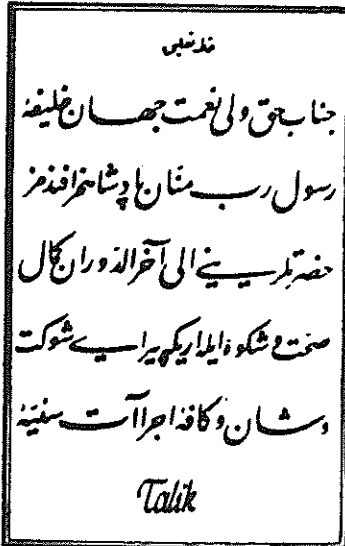 جناب حق ولی نعمت جهان خلیفهٔ
رسول رب منان پادشاهمز افندمز
حضرتلرینی الی آخر الدوران کمال
صحت و شکوه ایله اریکه پیرای شوکت
و شان و کافهٔ اجراآت سنیهٔ
Talik